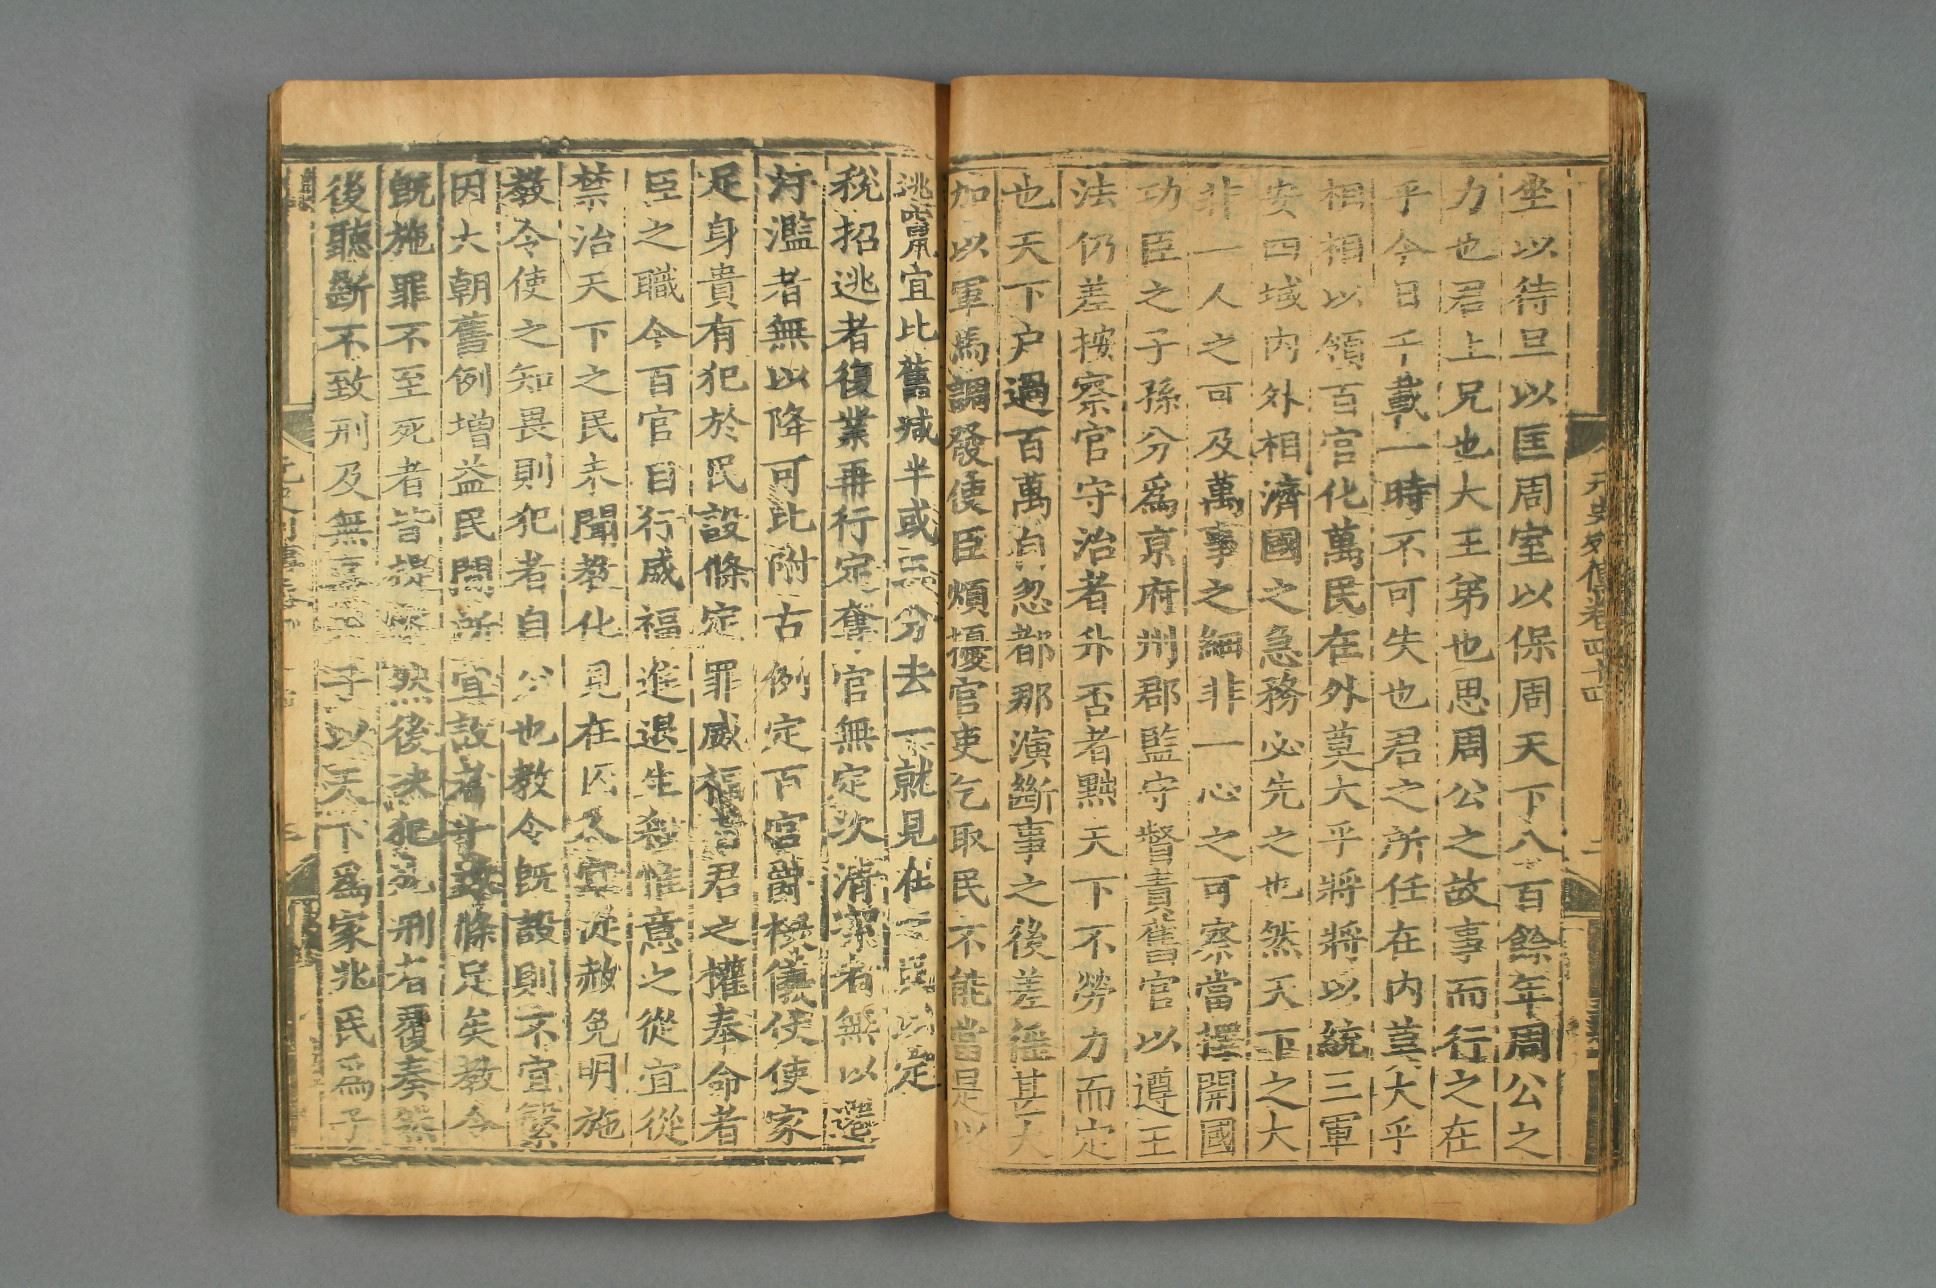 元史列傳卷四十四
二
坐以待旦以匡周室以保周天下八百餘年周公之
力也君上兄也大王弟也思周公之故事而行之在
乎今日千載一時不可失也君之所任在内莫大乎
相相以領百官化萬民在外莫大乎將將以統三軍
安四域内外相濟國之急務必先之也然天下之大
非一人之可及萬事之細非一心之可察當擇開國
功臣之子孫分爲京府州郡監守督責舊官以遵王
法仍差按察官守治者升否者黜天下不勞力而定
也天下户過百萬自忽都那演斷事之後差徭甚大
加以軍馬調發使臣煩擾官吏乞取民不能當是以
逃竄宜比舊減半或三分去一就見在之民以定
稅招逃者復業再行定奪官無定次清潔者無以遷
汙濫者無以降可比附古例定百官爵祿儀仗使家
足身貴有犯於民設條定罪威福者君之權奉命者
臣之職今百官自行威福進退生殺惟意之從宜從
禁治天下之民未聞教化見在囚人宜從赦免明施
教令使之知畏則犯者自少也教令既設則不宜繁
因大朝舊例增益民間所宜設者十數條足矣教令
既施罪不至死者皆提察然後決犯死刑者覆奏然
後聽斷不致刑及無辜天子以天下爲家兆民爲子
三